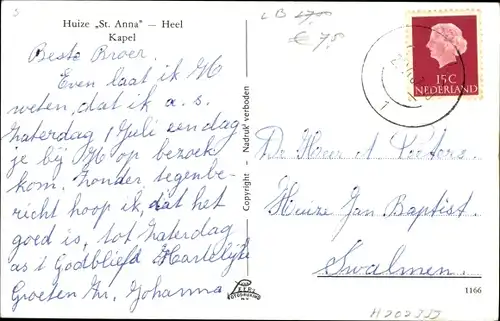 Huize „St. Anna" — Heel
Kapel
€ 7,5
15 C
NEDERLAND
Beste Broer.
Even laat ik U
weten, dat ik a. s.
Zaterdag 1 Juli een dag
je bij U op bezoek
kom. Zonder tegenbe-
richt hoop ik, dat het
goed is, tot Zaterdag
as 1 Godblieft Hartelijke
Groeten Zr. Johanna
Copyright - Nadruk verboden
De Heer A Peeters.
Huize Jan Baptist.
Swalmen.
1166